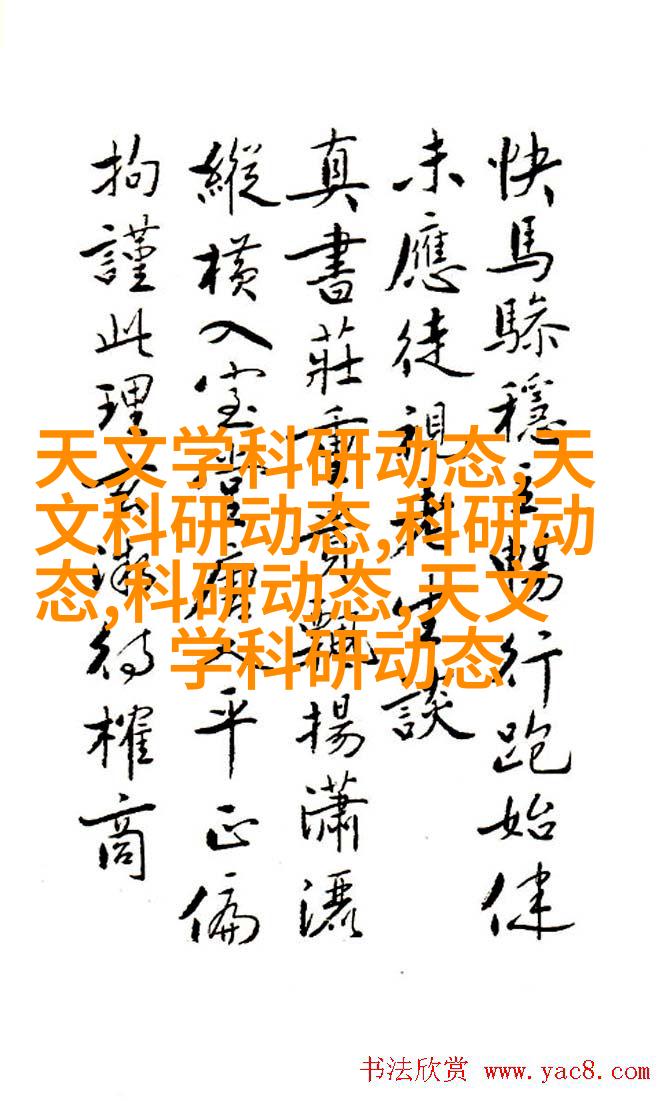 快馬穩暢行跑始健
未應徒視生談
真書莊重貴飄揚瀟灑
縱橫入室平正偏
拘謹此理玄微待榷商
天文学科研动态,天
文科研动态,科研动
态,科研动态,天文
学科研动态
书法欣赏 www.yac8.com